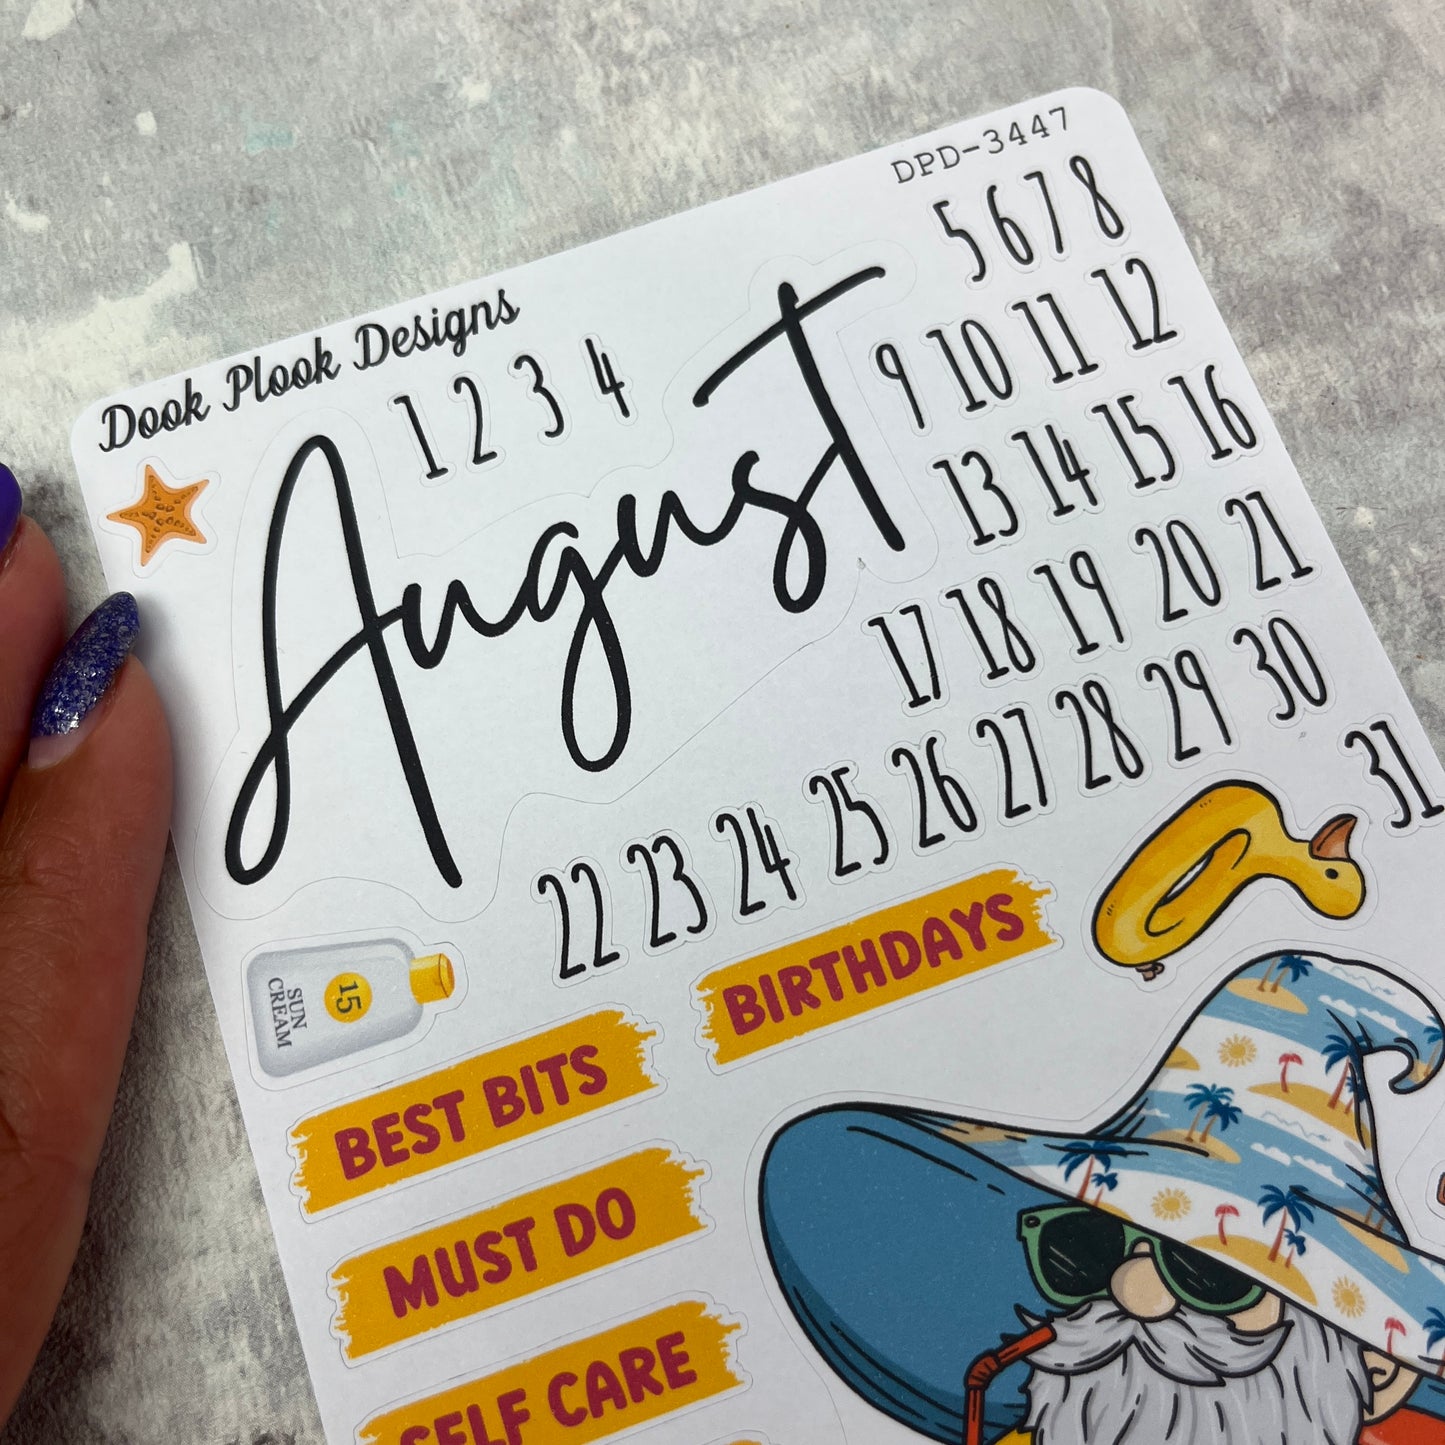 DPD-3447
Dook Plook Designs
1 2 3 4
5 6 7 8
August
9 10 11 12
13 14 15 16
17 18 19 20 21
22 23 24 25 26 27 28 29 30
31
SUN
CREAM
15
BIRTHDAYS
BEST BITS
MUST DO
SELF CARE